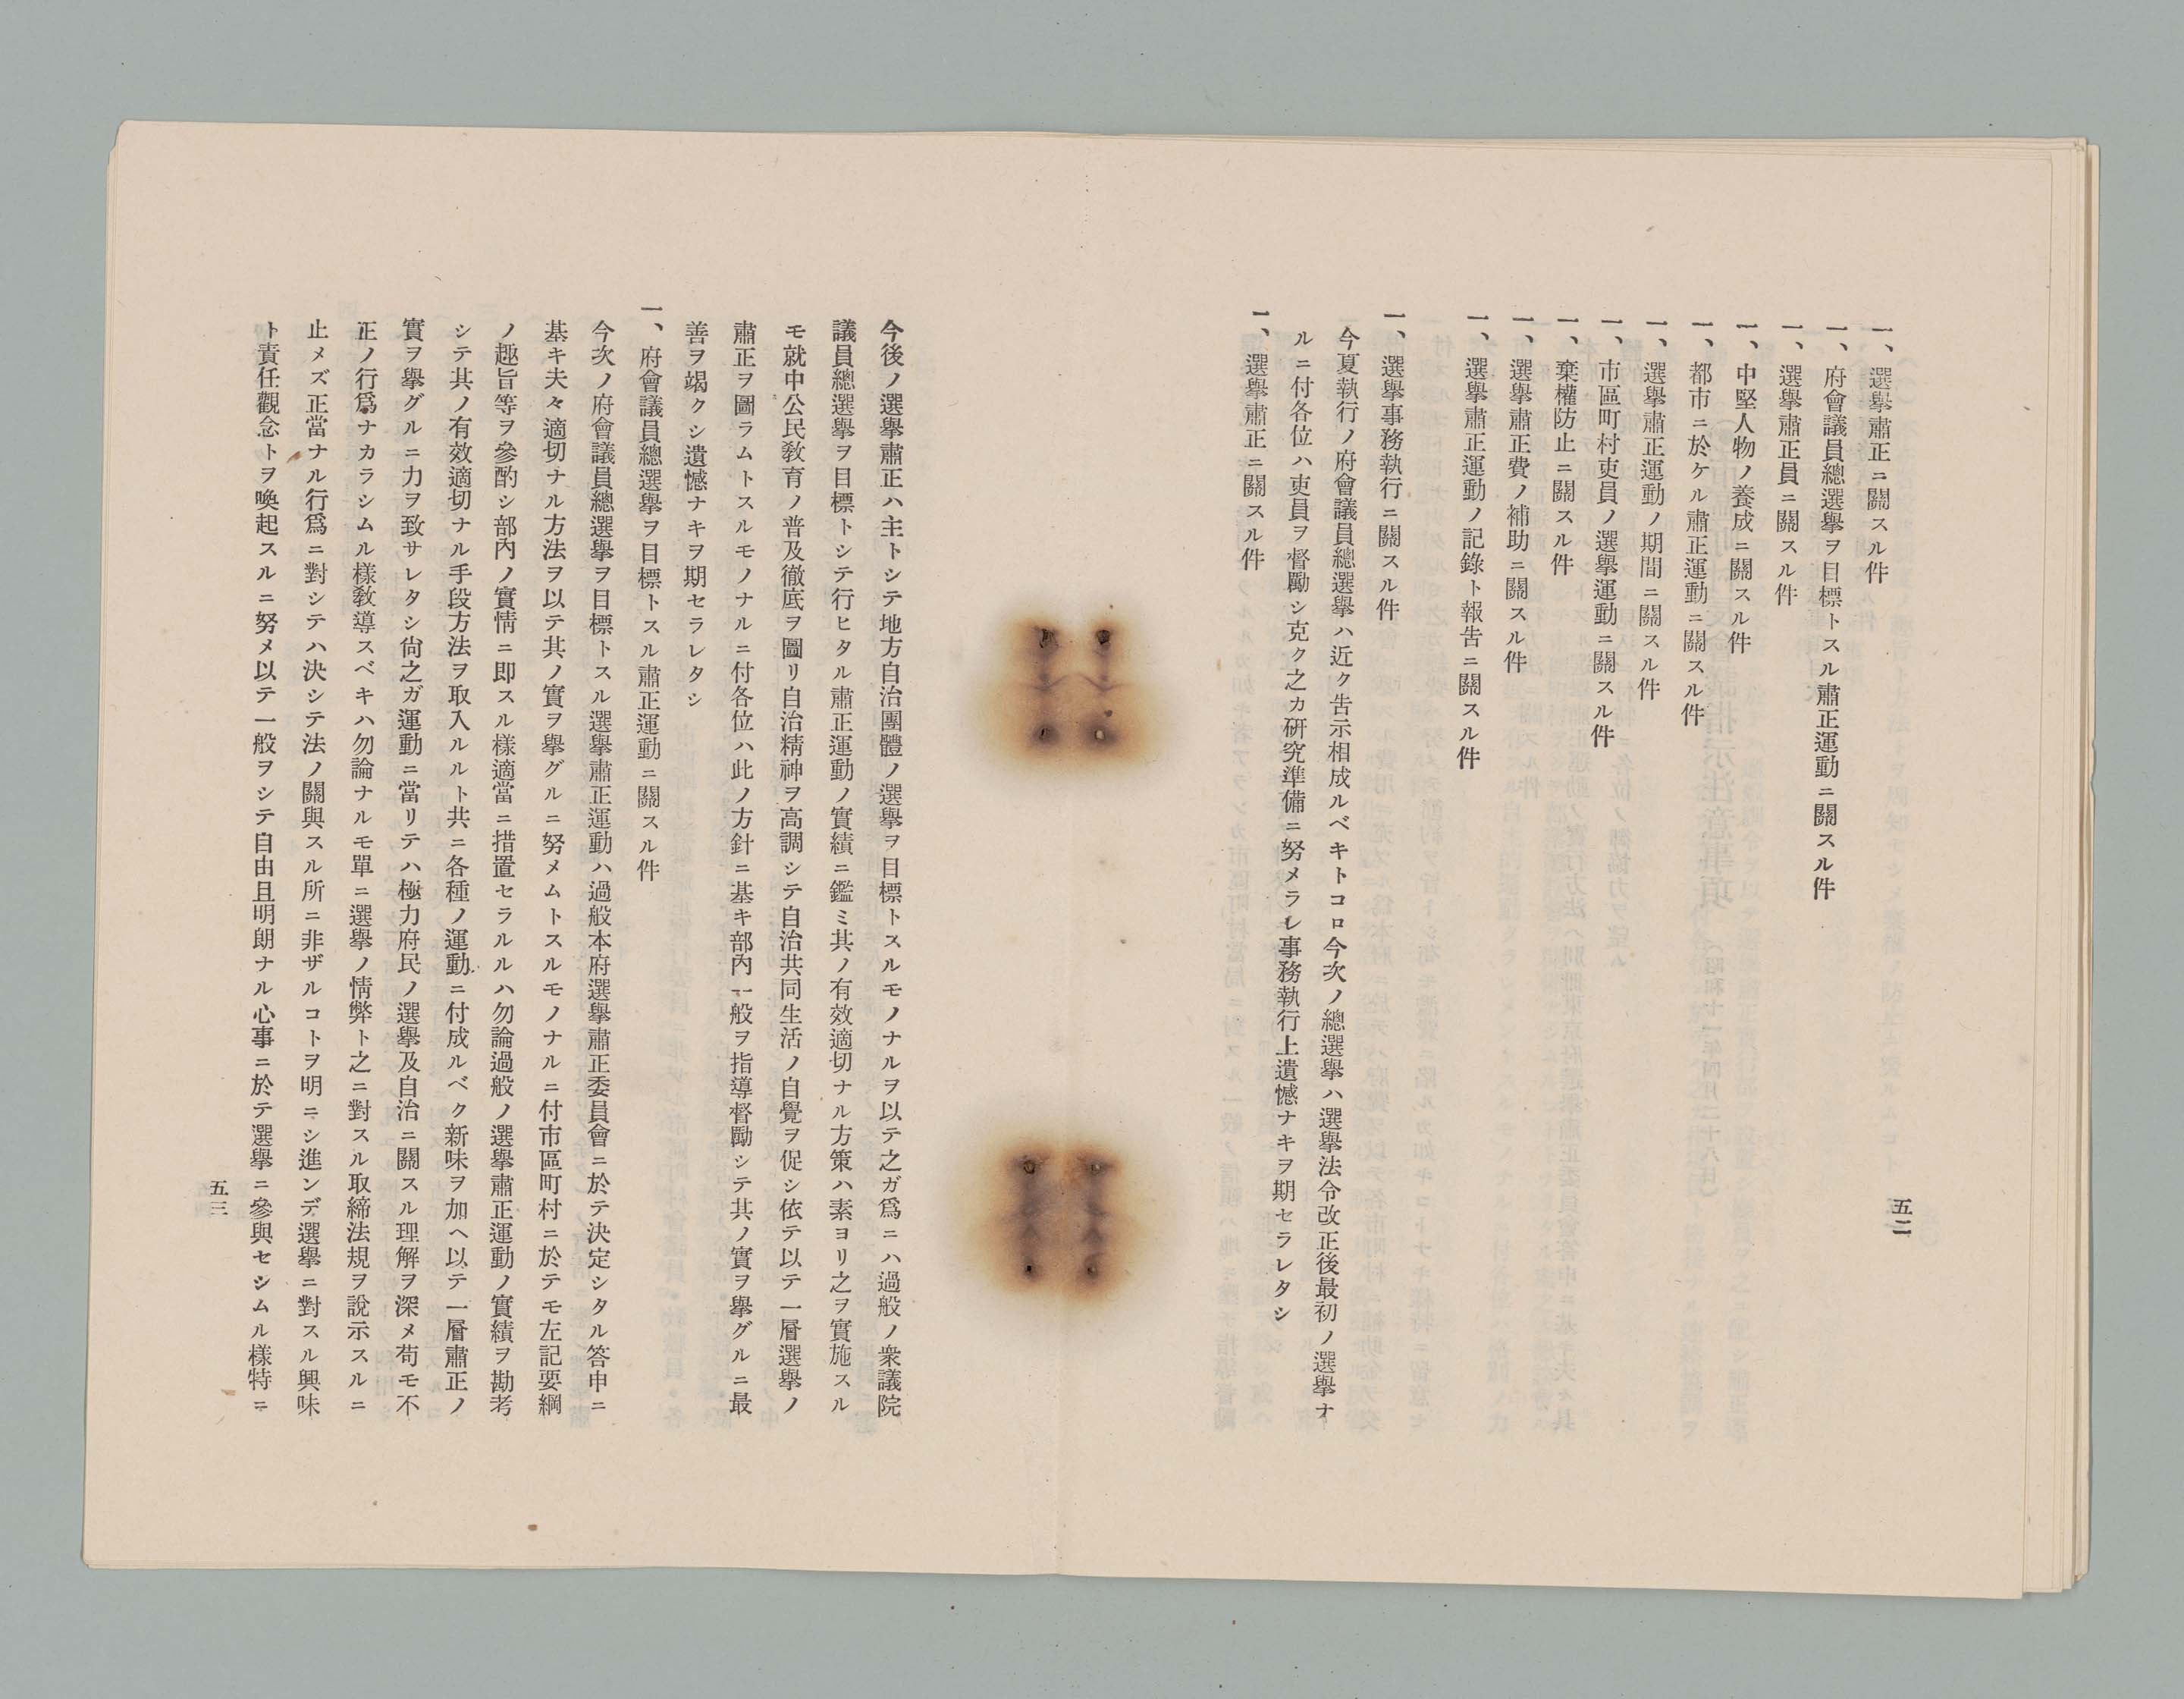 一、選擧肅正ニ關スル件
一、府會議員總選擧ヲ目標トスル肅正運動ニ關スル件
一、選擧肅正員ニ關スル件
一、中堅人物ノ養成ニ關スル件
一、都市ニ於ケル肅正運動ニ關スル件
一、選擧肅正運動ノ期間ニ關スル件
一、市區町村吏員ノ選擧運動ニ關スル件
一、棄權防止ニ關スル件
一、選擧肅正費ノ補助ニ關スル件
一、選擧肅正運動ノ記錄ト報告ニ關スル件
一、選擧事務執行ニ關スル件
今夏執行ノ府會議員總選擧ハ近ク告示相成ルベキトコロ今次ノ總選擧ハ選擧法令改正後最初ノ選擧ナ
ルニ付各位ハ吏員ヲ督勵シ克ク之カ硏究準備ニ努メラレ事務執行上遺憾ナキヲ期セラレタシ
一、選擧肅正ニ關スル件
五二
今後ノ選擧肅正ハ主トシテ地方自治團體ノ選擧ヲ目標トスルモノナルヲ以テ之ガ爲ニハ過般ノ衆議院
議員總選擧ヲ目標トシテ行ヒタル肅正運動ノ實績ニ鑑ミ其ノ有效適切ナル方策ハ素ヨリ之ヲ實施スル
モ就中公民敎育ノ普及徹底ヲ圖リ自治精神ヲ高調シテ自治共同生活ノ自覺ヲ促シ依テ以テ一層選擧ノ
肅正ヲ圖ラムトスルモノナルニ付各位ハ此ノ方針ニ基キ部內一般ヲ指導督勵シテ其ノ實ヲ擧グルニ最
善ヲ竭クシ遺憾ナキヲ期セラレタシ
一、府會議員總選擧ヲ目標トスル肅正運動ニ關スル件
今次ノ府會議員總選擧ヲ目標トスル選擧肅正運動ハ過般本府選擧肅正委員會ニ於テ決定シタル答申ニ
基キ夫々適切ナル方法ヲ以テ其ノ實ヲ擧グルニ努メムトスルモノナルニ付市區町村ニ於テモ左記要綱
ノ趣旨等ヲ參酌シ部內ノ實情ニ即スル樣適當ニ措置セラルルハ勿論過般ノ選擧肅正運動ノ實績ヲ勘考
シテ其ノ有效適切ナル手段方法ヲ取入ルルト共ニ各種ノ運動ニ付成ルベク新味ヲ加ヘ以テ一層肅正ノ
實ヲ擧グルニ力ヲ致サレタシ尙之ガ運動ニ當リテハ極力府民ノ選擧及自治ニ關スル理解ヲ深メ苟モ不
正ノ行爲ナカラシムル樣敎導スベキハ勿論ナルモ單ニ選擧ノ情弊ト之ニ對スル取締法規ヲ說示スルニ
止メズ正當ナル行爲ニ對シテハ決シテ法ノ關與スル所ニ非ザルコトヲ明ニシ進ンデ選擧ニ對スル興味
ト責任觀念トヲ喚起スルニ努メ以テ一般ヲシテ自由且明朗ナル心事ニ於テ選擧ニ參與セシムル樣特ニ
五三